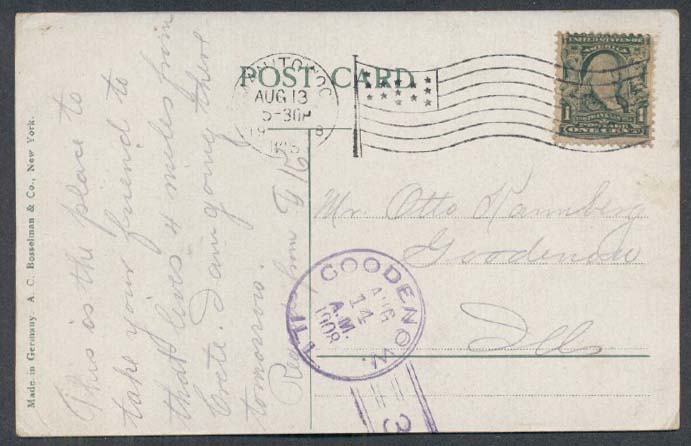 Made in Germany. A. C. Bosselman & Co., New York.
This is the place to
take your friend to
that lives 4 miles from
Crete. I am going there
tomorrow.
from
POST CARD
AUG 13
5-30P
UNITED STATES OF
AMERICA
1 1
ONE CENT
Mr. Otto
Goodenow
Ills
GOODENOW. ILL.
AUG
14
A.M.
1908
3